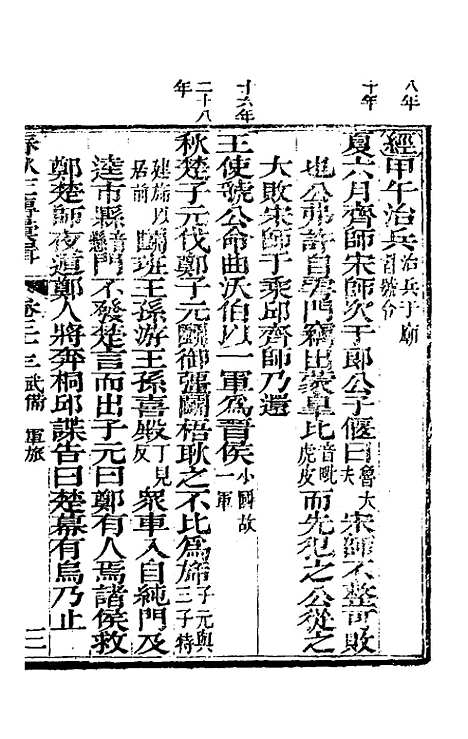 八年
經甲午治兵治兵于廟習號令
十年
夏六月齊師宋師次于郎公子偃曰魯大夫宋師不整可敗
也公弗許自雩門竊出蒙皋比音毗虎皮而先犯之公從之
大敗宋師于乘邱齊師乃還
十六年
王使虢公命曲沃伯以一軍為晉侯小國故一軍
二十八年
秋楚子元伐鄭子元鬭御彊鬭梧耿之不比為旆子元與三子特
建旆以居前鬭班王孫游王孫喜殿丁見反衆車入自純門及
逵市縣音懸門不發楚言而出子元曰鄭有人焉諸侯救
鄭楚師夜遁鄭人將奔桐邱諜告曰楚幕有烏乃止
武備 軍旅
三